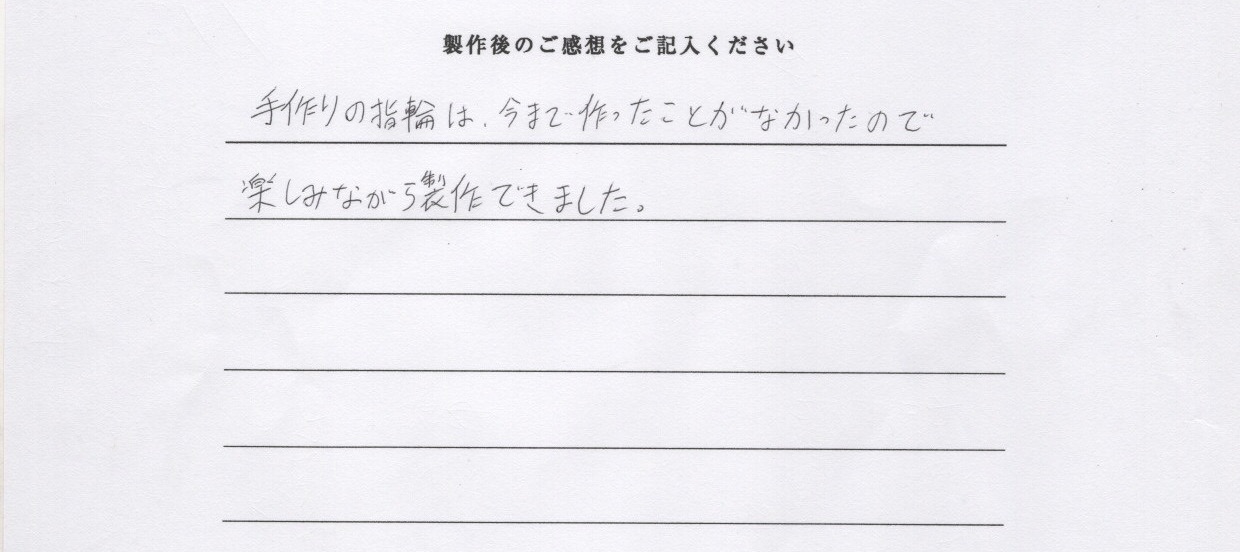 製作後のご感想をご記入ください
手作りの指輪は、今まで作ったことがなかったので
楽しみながら製作できました。